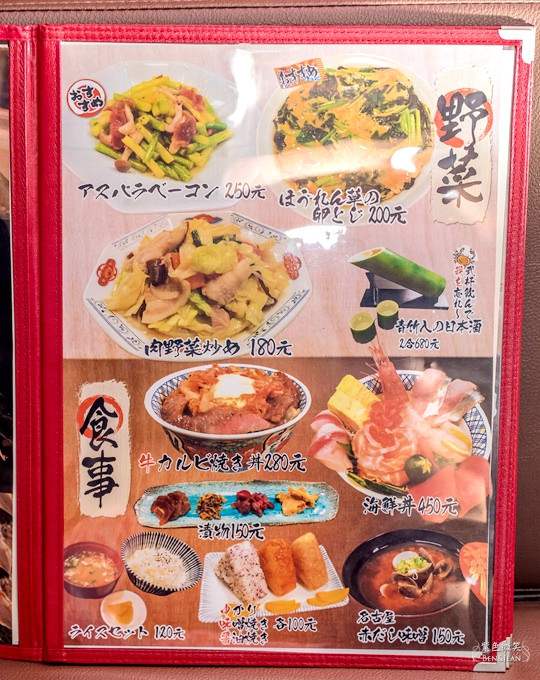 おすすめ
アスパラベーコン 250元
おすすめ
ほうれん草の
卵とじ 200元
野菜
肉野菜炒め 180元
青竹入の日本酒
2合680元
食事
牛カルビ焼き丼280元
海鮮丼 450元
漬物150元
ライスセット 120元
ゆかり
味噌焼き 各100元
醤油焼き
名古屋
赤だし味噌 150元
紫色微笑
BENSTEAN